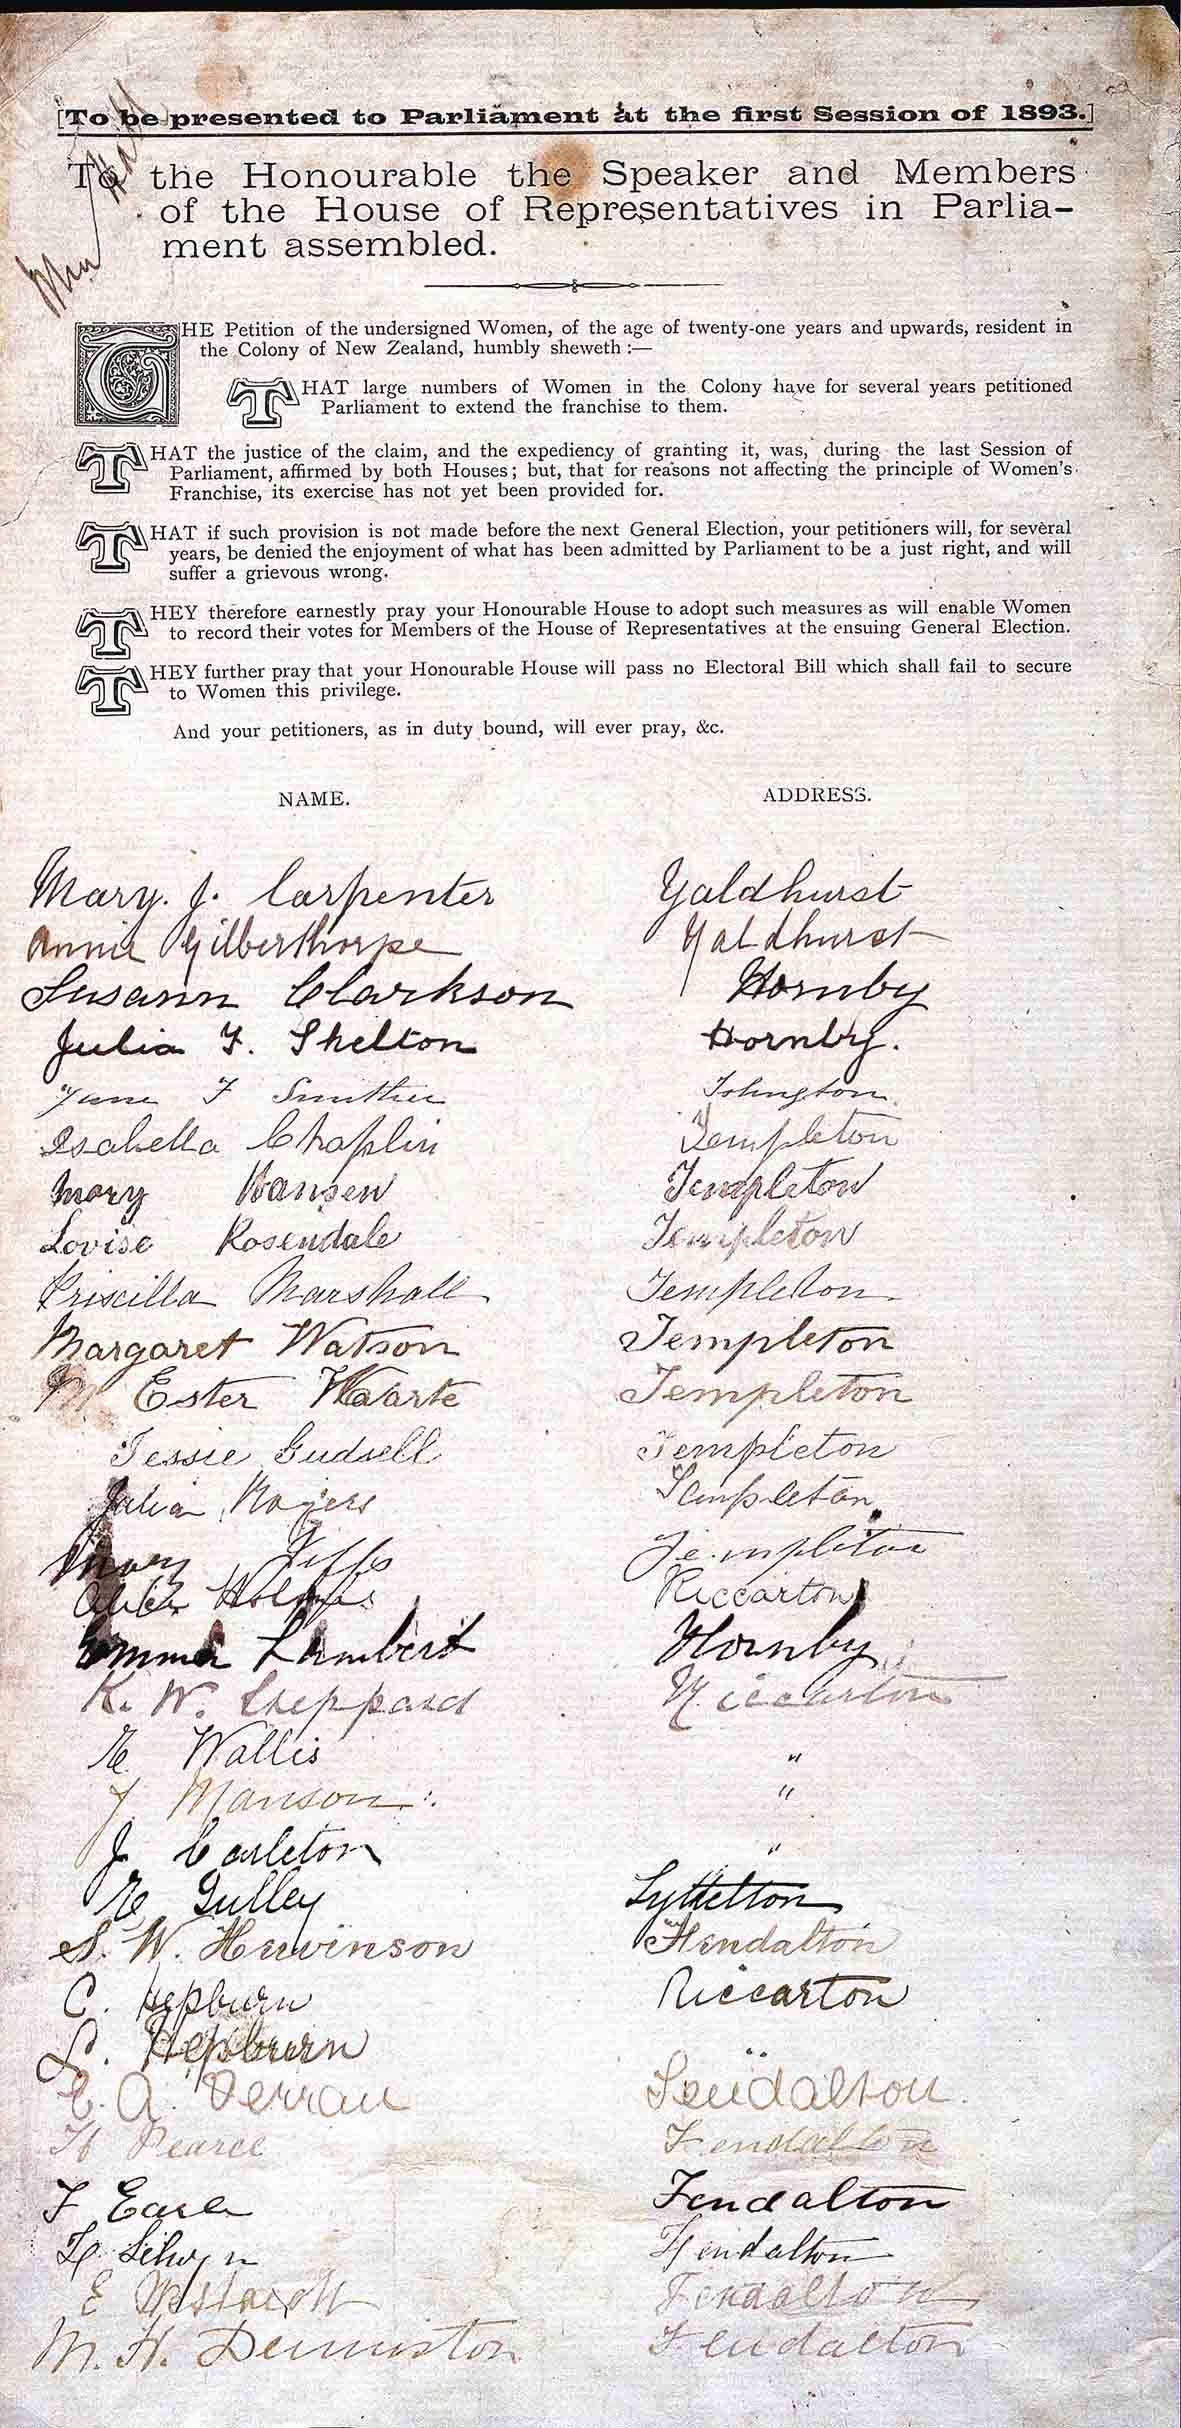 [To be presented to Parliament at the first Session of 1893.]
To the Honourable the Speaker and Members
of the House of Representatives in Parlia-
ment assembled.
THE Petition of the undersigned Women, of the age of twenty-one years and upwards, resident in
the Colony of New Zealand, humbly sheweth :—
THAT large numbers of Women in the Colony have for several years petitioned
Parliament to extend the franchise to them.
THAT the justice of the claim, and the expediency of granting it, was, during the last Session of
Parliament, affirmed by both Houses; but, that for reasons not affecting the principle of Women's
Franchise, its exercise has not yet been provided for.
THAT if such provision is not made before the next General Election, your petitioners will, for several
years, be denied the enjoyment of what has been admitted by Parliament to be a just right, and will
suffer a grievous wrong.
THEY therefore earnestly pray your Honourable House to adopt such measures as will enable Women
to record their votes for Members of the House of Representatives at the ensuing General Election.
THEY further pray that your Honourable House will pass no Electoral Bill which shall fail to secure
to Women this privilege.
And your petitioners, as in duty bound, will ever pray, &c.
NAME. ADDRESS.
Mary. J. Carpenter Yaldhurst
Annie Gilberthorpe Yaldhurst
Susann Clarkson Hornby
Julia F. Shelton Hornby.
Jane F
Isabella Chaplin Templeton
Mary Hansen Templeton
Lovise Rosendale Templeton
Priscilla Marshall Templeton
Margaret Watson Templeton
M Ester Templeton
Jessie Gudsell Templeton
Julia Rogers Templeton
Mary Tiffs Templeton
Alice Holmes Riccarton
Emma Lambert Hornby
K. W. Sheppard Riccarton
E. Wallis "
J. Manson "
J Carleton "
E Gulley Lyttelton
S. W. Fendalton
C. Hepburn Riccarton
L. Hepburn "
C. A. Ferrau Fendalton
H Pearce Fendalton
F Earle Fendalton
H Selwyn Fendalton
E Fendalton
M. H. Denniston Fendalton